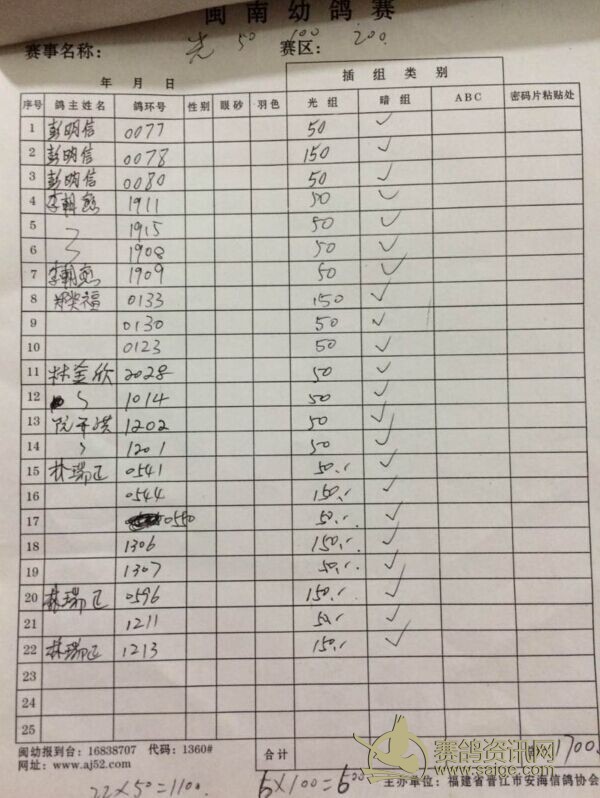 闽南幼鸽赛
赛事名称： 光 50 100 赛区： 200.
年 月 日 插组类别
序号 鸽主姓名 鸽环号 性别 眼砂 羽色 光组 暗组 ABC 密码片粘贴处
1 彭明信 0077 50 ✓
2 彭明信 0078 150 ✓
3 彭明信 0080 50 ✓
4 李朝 1911 50 ✓
5 1915 50 ✓
6 1908 50 ✓
7 李朝 1909 50 ✓
8 福 0133 150 ✓
9 0130 50 ✓
10 0123 50 ✓
11 林金欣 2028 50 ✓
12 1014 50 ✓
13 1202 50 ✓
14 1201 50 ✓
15 林瑞正 0541 50 ✓
16 0544 150 ✓
17 0550 50 ✓
18 1306 150 ✓
19 1307 50 ✓
20 林瑞正 0596 150 ✓
21 1211 50 ✓
22 林瑞正 1213 150 ✓
23
24
25
闽幼报到台：16838707 代码：1360# 合计 1700
网址：www.aj52.com 主办单位：福建省晋江市安海信鸽协会
22×50=1100. 6×100=600
赛鸽资讯网
www.saige.com